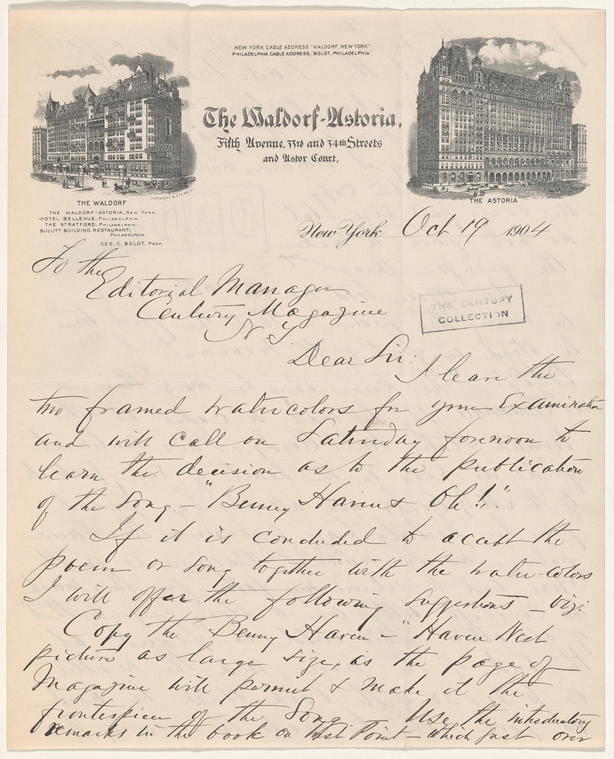 NEW YORK CABLE ADDRESS "WALDORF, NEW YORK"
PHILADELPHIA CABLE ADDRESS, "BOLDT, PHILADELPHIA".
The Waldorf-Astoria,
Fifth Avenue, 33rd and 34th Streets
and Astor Court,
THE WALDORF
THE ASTORIA
THE WALDORF-ASTORIA, NEW YORK.
HOTEL BELLEVUE, PHILADELPHIA.
THE STRATFORD, PHILADELPHIA.
BULLITT BUILDING RESTAURANT,
PHILADELPHIA.
GEO. C. BOLDT, PROP.
New York Oct 19 1904
To the
Editorial Manager
Century Magazine
N Y
THE CENTURY
COLLECTION
Dear Sir:
I leave the
two framed watercolors for your Examination
and will call on Saturday forenoon to
learn the decision as to the publication
of the Song - "Benny Havens Oh!".
If it is concluded to accept the
poem or song together with the water-colors
I will offer the following suggestions - viz:
Copy the Benny Haven - "Haven Nest
picture as large size, as the page of
Magazine will permit & make it the
frontispiece of the Song. Use the introductory
remarks in the book on West Point - which just over